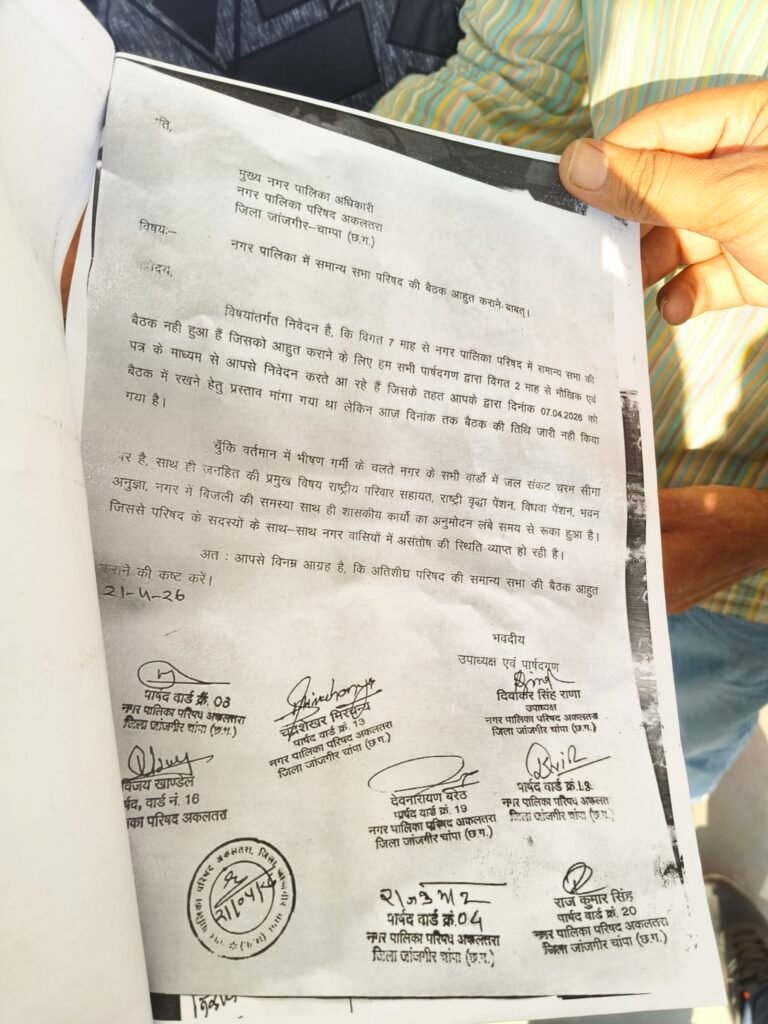 ति,
मुख्य नगर पालिका अधिकारी
नगर पालिका परिषद अकलतरा
जिला जांजगीर–चाम्पा (छ.ग.)
विषयः–
नगर पालिका में समान्य सभा परिषद की बैठक आहुत कराने बाबत्।
दय,
विषयांतर्गत निवेदन है, कि विगत 7 माह से नगर पालिका परिषद में समान्य सभा की
बैठक नही हुआ हैं जिसको आहुत कराने के लिए हम सभी पार्षदगण द्वारा विगत 2 माह से मौखिक एवं
पत्र के माध्यम से आपसे निवेदन करते आ रहे हैं जिसके तहत आपके द्वारा दिनांक 07.04.2026 को
बैठक में रखने हेतु प्रस्ताव मांगा गया था लेकिन आज दिनांक तक बैठक की तिथि जारी नही किया
गया है।
चुँकि वर्तमान में भीषण गर्मी के चलते नगर के सभी वार्डो में जल संकट चरम सीमा
पर है, साथ ही जनहित की प्रमुख विषय राष्ट्रीय परिवार सहायत, राष्ट्री वृद्धा पेंशन, विधवा पेंशन, भवन
अनुज्ञा, नगर में बिजली की समस्या साथ ही शासकीय कार्यो का अनुमोदन लंबे समय से रूका हुआ है।
जिससे परिषद के सदस्यों के साथ–साथ नगर वासियों में असंतोष की स्थिति व्याप्त हो रही है।
अत : आपसे विनम्र आग्रह है, कि अतिशीघ्र परिषद की समान्य सभा की बैठक आहुत
कराने की कष्ट करें।
21-4-26
भवदीय
उपाध्यक्ष एवं पार्षदगण
दिवाकर सिंह राणा
उपाध्यक्ष
नगर पालिका परिषद अकलतरा
जिला जांजगीर चांपा (छ.ग.)
पार्षद वार्ड क्रं. 03
नगर पालिका परिषध अकलतरा
जिला जांजगीर चांपा (छ.ग.)
चंद्रशेखर मिरचन्य
पार्षद वार्ड क्रं. 13
नगर पालिका परिषद अकलतरा
जिला जांजगीर चांपा (छ.ग.)
विजय खाण्डेल
र्षद, वार्ड नं. 16
का परिषद अकलतरा
देवनारायण बरेठ
पार्षद वार्ड क्रं. 19
नगर पालिका परिषध अकलतरा
जिला जांजगीर चांपा (छ.ग.)
पार्षद वार्ड क्रं.
नगर पालिका परिषध अकलत
जिला जांजगीर चांपा (छ.ग.)
नगर पालिका परिषद अकलतरा, जिला जांजगीर चांपा (छ.ग.)
21/04/26
राजकुमार
पार्षद वार्ड क्रं.04
नगर पालिका परिषध अकलतरा
जिला जांजगीर चांपा (छ.ग.)
राज कुमार सिंह
पार्षद वार्ड क्रं. 20
नगर पालिका परिषध अकलतरा
जिला जांजगीर चांपा (छ.ग.)